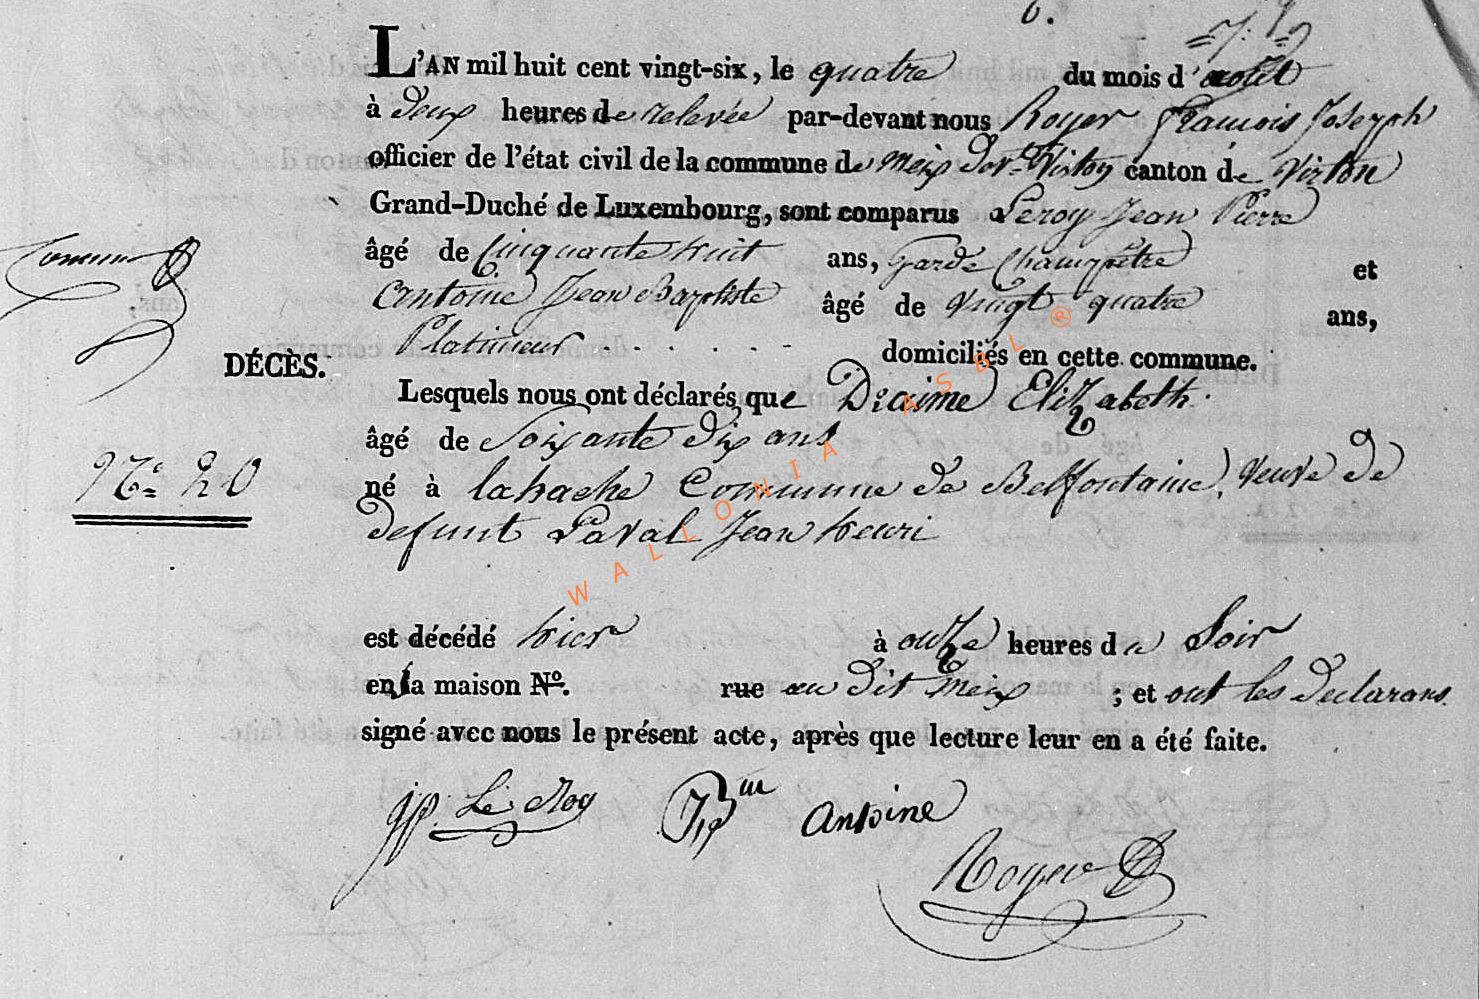 6.
L'AN mil huit cent vingt-six, le quatre du mois d'aout
à deux heures de relevée par-devant nous Royer francois Joseph
officier de l'état civil de la commune de Meix devt Virton canton de Virton
Grand-Duché de Luxembourg, sont comparus Leroy Jean Pierre
âgé de Cinquante huit ans, Garde Champêtre et
Antoine Jean Baptiste âgé de Vingt quatre ans,
Platineur . . . . . - domiciliés en cette commune.
DÉCÈS.
Lesquels nous ont déclarés que Draime Elizabeth.
âgé de Soixante dix ans
No 20
né à lahache Commune de Belfontaine, Veuve de
defunt Laval Jean henri
est décédé hier à onze heures du Soir
en la maison No. rue au dit Meix ; et ont les declarans
signé avec nous le présent acte, après que lecture leur en a été faite.
jp. Le Roy Antoine
Royer
WALLONIA ASBL ®